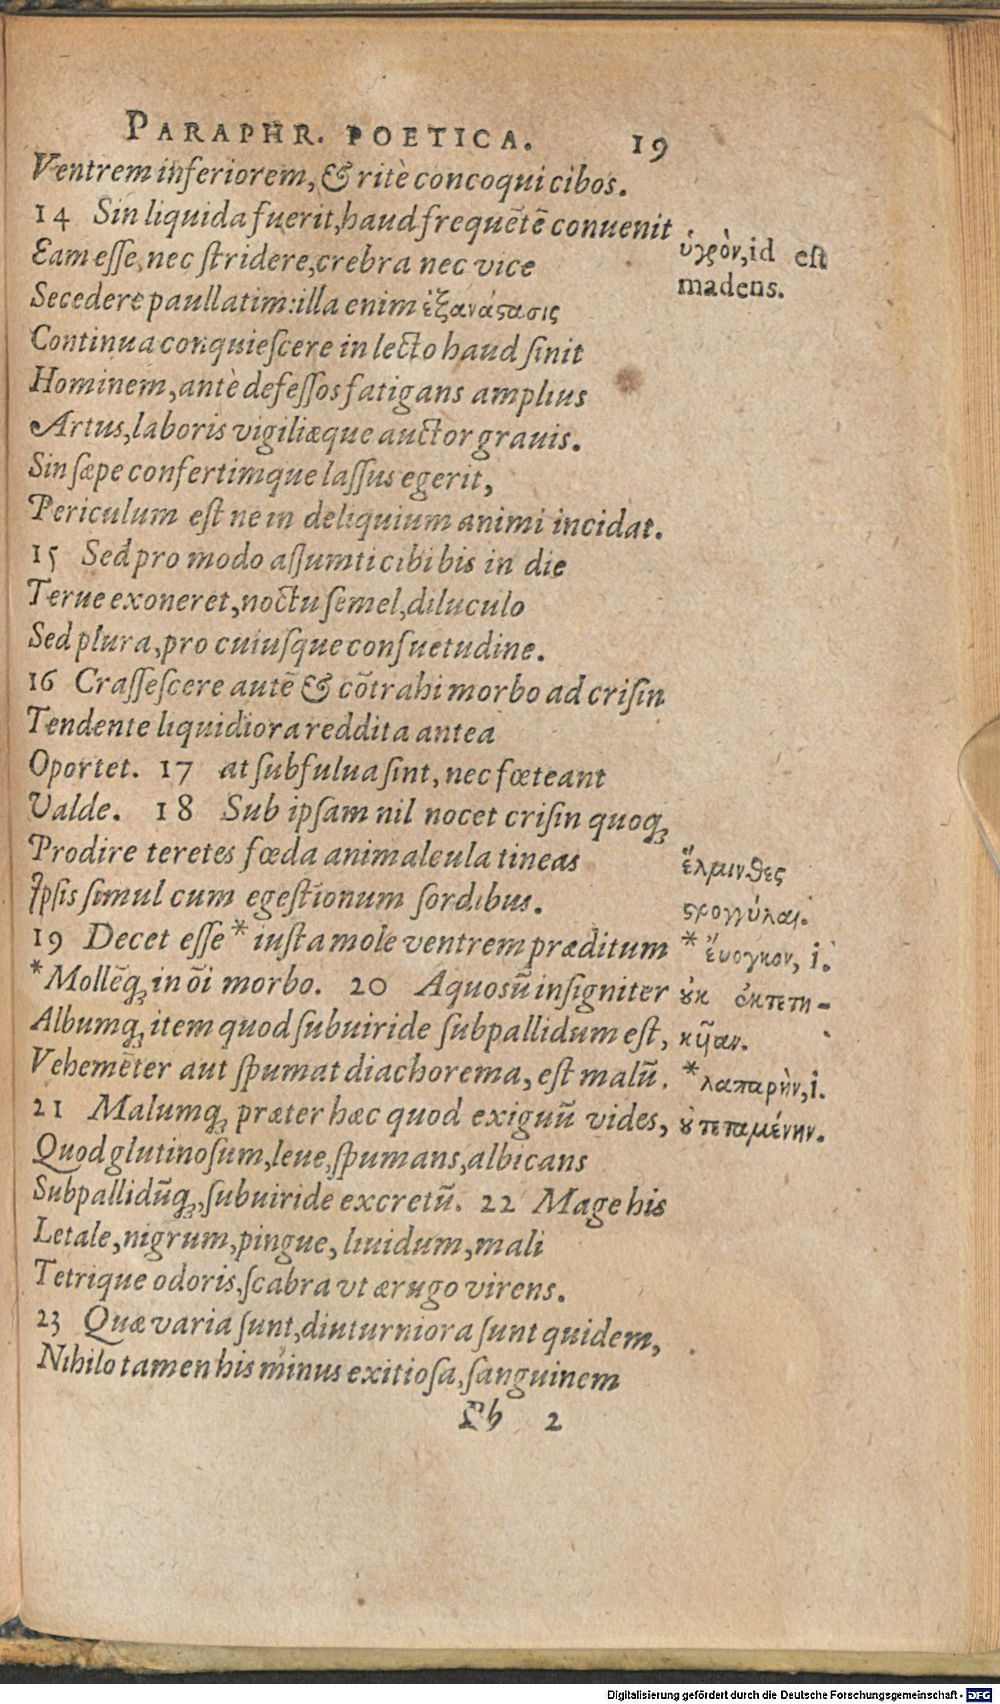 PARAPHR. POETICA. 19
Ventrem inferiorem, & ritè concoqui cibos.
14 Sin liquida fuerit, haud frequētē conuenit
Eam esse, nec stridere, crebra nec vice
Secedere paullatim: illa enim ἐξανάϛασις
Continua conquiescere in lecto haud sinit
Hominem, antè defessos fatigans amplius
Artus, laboris vigiliæque auctor grauis.
Sin sæpe confertimque lassus egerit,
Periculum est ne in deliquium animi incidat.
15 Sed pro modo assumti cibi bis in die
Terue exoneret, noctu semel, diluculo
Sed plura, pro cuiusque consuetudine.
16 Crassescere autē & cōtrahi morbo ad crisin
Tendente liquidiora reddita antea
Oportet. 17 at subfulua sint, nec fœteant
Valde. 18 Sub ipsam nil nocet crisin quoq́;
Prodire teretes fœda animalcula tineas
Ipsis simul cum egestionum sordibus.
19 Decet esse * iusta mole ventrem præditum
*Mollēq; in ōi morbo. 20 Aquosū insigniter
Albumq; item quod subuiride subpallidum est,
Vehemēter aut spumat diachorema, est malū.
21 Malumq; præter hæc quod exiguū vides,
Quod glutinosum, leue, spumans, albicans
Subpallidūq;, subuiride excretū. 22 Mage his
Letale, nigrum, pingue, liuidum, mali
Tetrique odoris, scabra vt ærugo virens.
23 Quæ varia sunt, diuturniora sunt quidem,
Nihilo tamen his minus exitiosa, sanguinem
b 2
ὑγρὸν, id est
madens.
ἕλμινθες
ϛρογγύλαι.
* ἔυογκον, i.
ȣκ ἐκτετη-
κῃαν.
* λαπαρὴν, i.
ȣ τεταμένην.
Digitalisierung gefördert durch die Deutsche Forschungsgemeinschaft - DFG